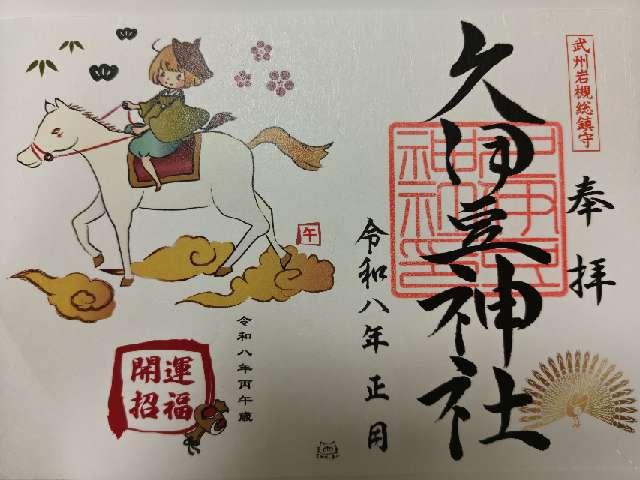 武州岩槻総鎮守
奉拝
久伊豆神社
令和八年正月
午
令和八年丙午歳
開運
招福